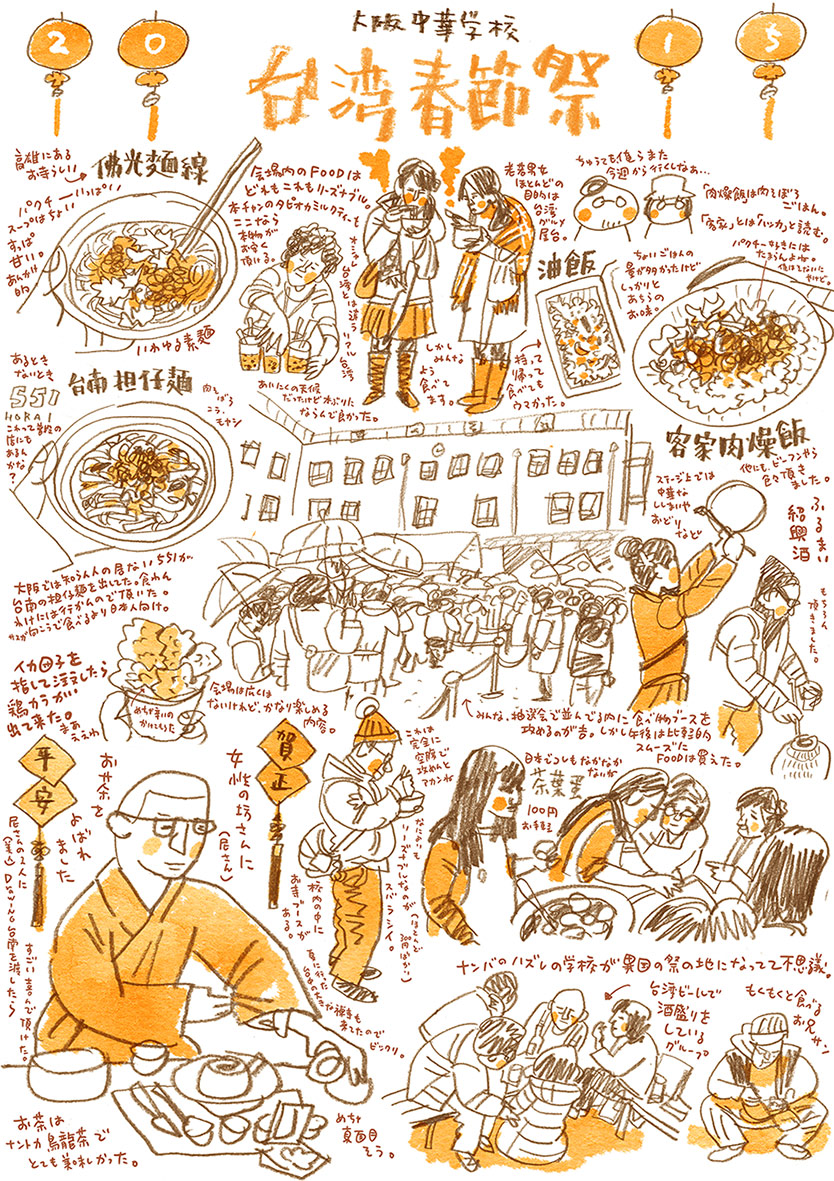 2015
大阪中華学校
台湾春節祭
高雄にある
お寺らしい
佛光麵線
パクチーいっぱい
スープはちょい
すっぱ
甘い。
あんかけ
的
いわゆる素麺
会場内のFOODは
どれもこれもリーズナブル。
本チャンのタピオカミルクティーも
ここなら
本物が
お安く
頂ける。
オシャレ
台湾とは違う
リアル台湾
老若男女
ほとんどの
目的は
台湾
グルメ
屋台。
しかし
みんな
よう
食べて
ます。
ちゅうても俺らまた
今週から行くしなぁ…
「肉燥飯は肉そぼろ
ごはん。
「客家」とは「ハッカ」と読む。
パクチー好きには
たまらんよな。
油飯
ちょいごはんの
量が多かったけど
しっかりと
あちらの
お味。
持って
帰って
食べても
ウマかった。
客家肉燥飯
他にも、ビーフンやら
色々頂き
ました。
あるとき
ないとき
551
HORAI
これって普段の
店にも
あるん
かな?
台南担仔麵
肉そ
ぼろ
ニラ、
モヤシ
あいにくの天候
だったけど木ぶりに
ならんで食かった。
大阪では知らん人の居ない551が
台南の担仔麺を出してた。食わん
わけには行かんので頂いた。
向こうで食べるより日本人向け。
イカ団子を
指して注文したら
鶏カラが
出て来た。
まあ
ええわ
めちゃ辛いの
かけてもらった
会場は広くは
ないけれど、かなり楽しめる
内容。
ステージ上では
中華な
ししまいや
おどり
など
ふるまい
紹興酒
もちろん
頂きました。
みんな、抽選会で並んでる内に食べ物ブースを
攻めるのが吉。しかし午後は比較的
スムーズに
FOODは買えた。
平安
賀正
お茶を
よばれ
ました
女性の坊さんに
(尼さん)
尼さんの2人に
DRAWING台南を渡したら
すごい喜んで頂けた。
これは
完全に
空腹で
攻めんと
アカンね
なによりも
リーズナブルなのが
スバラシイ。
(ほとんど
300円ばかり)
校内の中に
お寺ブースが
ある。
夏に行った
台中の大きな禅寺も
来てたので
ビックリ。
日本でコレもなかなか
ないが
茶葉蛋
100円
お手軽
ナンバのハズレの学校が異国の祭の地になってて不思議
台湾ビールで
酒盛りを
している
グループ
もくもくと食べる
お兄サン
お茶は
ナントカ烏龍茶で
とても美味しかった。
めちゃ
真面目
そう。